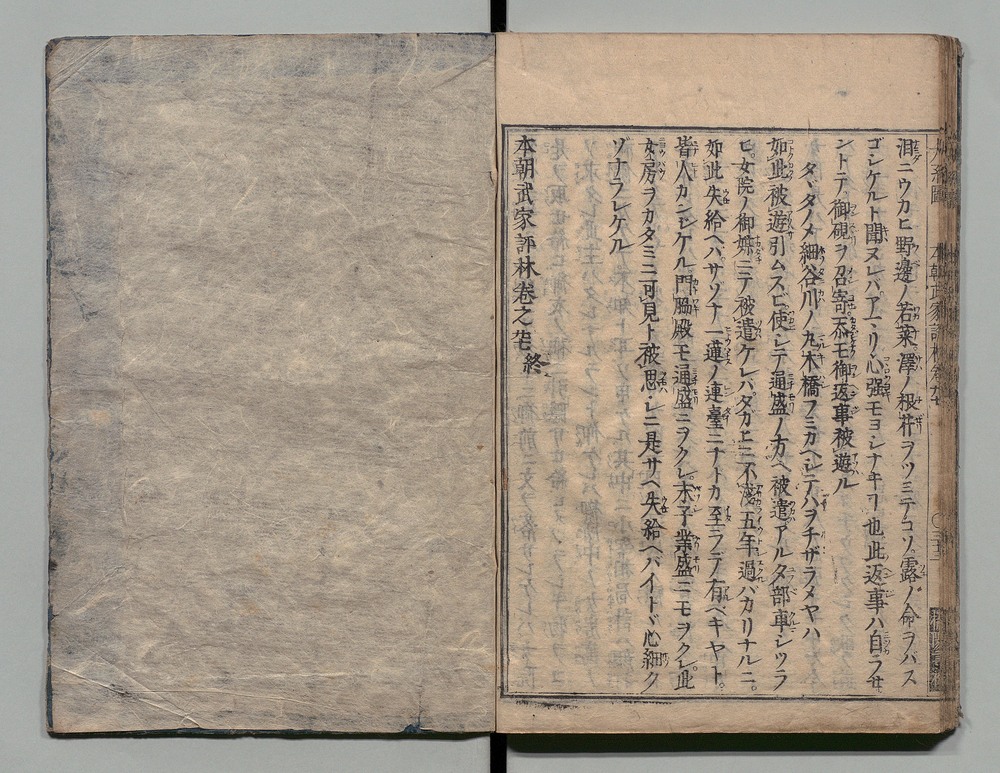 泪ニウカヒ野邊ノ若菜澤ノ根芹ヲツミテコソ露ノ命ヲハス
ゴシケルト聞ヌレバアマリ心強モヨシナキ也此返事ハ自ラせ
ントテ御硯ヲ召寄忝モ御返事被遊ル
タヽタノメ細谷川ノ丸木橋フミカヘシテハヲチザラメヤハ
如此被遊引ムスビ使シテ通盛ノ方ヘ被遣アルタ部車シツラ
ヒ女院ノ御媒ニテ被遣ケレバタカヒニ不淺五年過バカリナルニ
如此失給ヘハサソナ一蓮ノ連臺ニナトカ至ラテ有ベキヤト
皆人カンジケル門脇殿モ通盛ニヲクレ末子業盛ニモヲクレ此
女房ヲカタミニ可見ト被思シニ是サヘ失給ヘバイトヾ心細ク
ゾナラレケル
本朝武家評林巻之 終